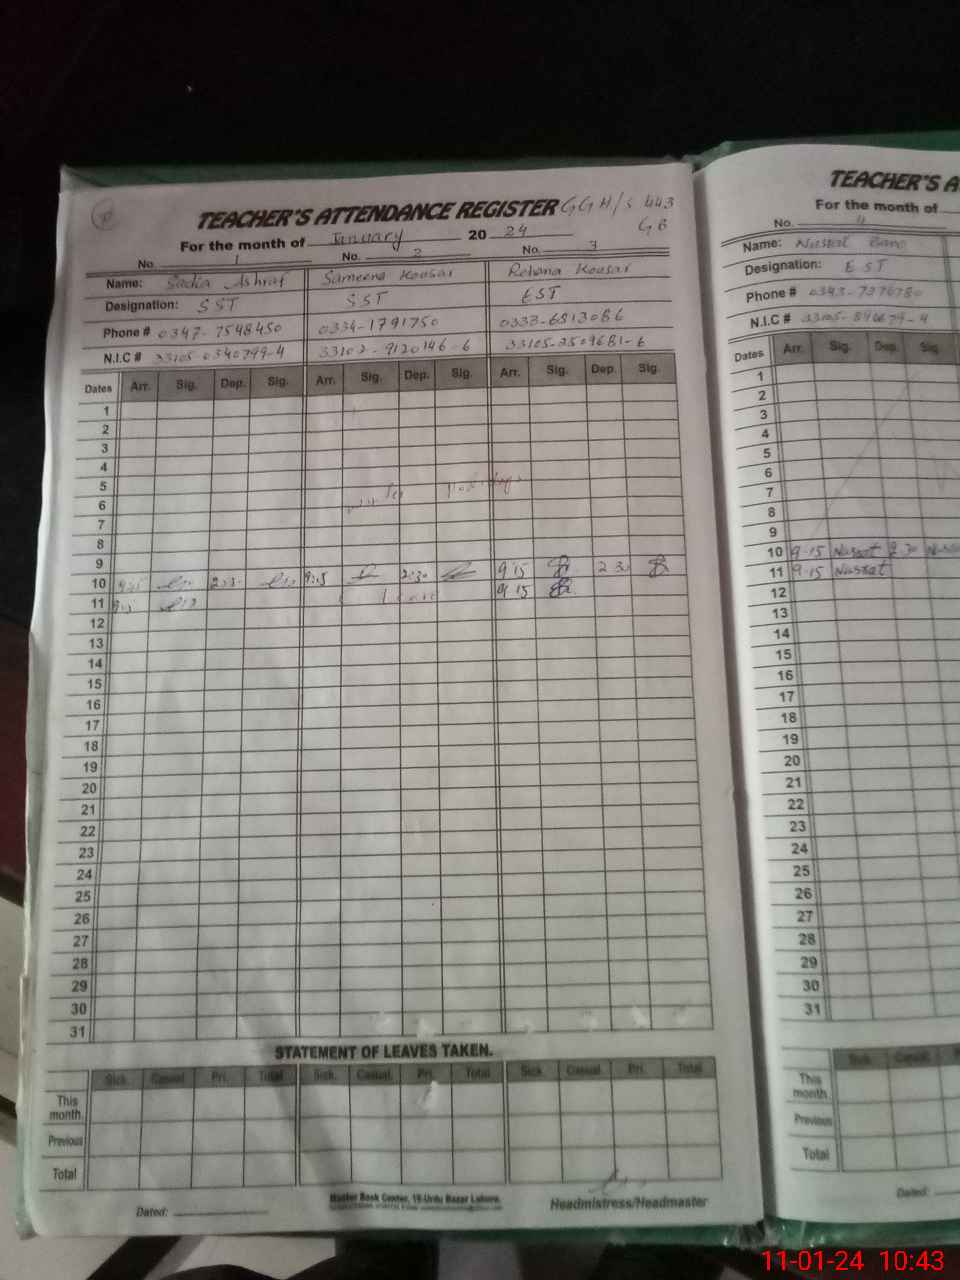 TEACHER'S ATTENDANCE REGISTER GGH/S 443
GB
For the month of January 2024
No. 1 No. 2 No. 3
Name: Sadia Ashraf Sameena Kousar Rehana Kousar
Designation: SST SST EST
Phone # 0347-7548450 0334-1791750 0333-6513086
N.I.C # 33105-0340799-4 33102-9120146-6 33105-2509681-6
Dates Arr. Sig. Dep. Sig. Arr. Sig. Dep. Sig. Arr. Sig. Dep. Sig.
1
2
3
4
5
6 winter Holidays
7
8
9
10 9:15 2:30 9:15 2:30 9 15 2 30
11 9:15 Leave 9 15
12
13
14
15
16
17
18
19
20
21
22
23
24
25
26
27
28
29
30
31
STATEMENT OF LEAVES TAKEN.
Sick. Casual. Pri. Total Sick. Casual. Pri. Total Sick. Casual. Pri. Total
This month.
Previous
Total
Dated:
Master Book Center, 15-Urdu Bazar Lahore.
Headmistress/Headmaster
TEACHER'S A
For the month of
No. 4
Name: Nusrat Bano
Designation: EST
Phone #
N.I.C #
Dates Arr. Sig. Dep. Sig.
1
2
3
4
5
6
7
8
9
10 9-15 Nusrat 2 30
11 9-15 Nusrat
12
13
14
15
16
17
18
19
20
21
22
23
24
25
26
27
28
29
30
31
Sick. Casual.
This month.
Previous
Total
Dated:
11-01-24 10:43